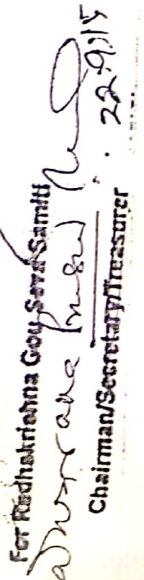 For Radhakrishna Gou Seva Samiti
Chairman/Secretary/Treasurer
22.9.15